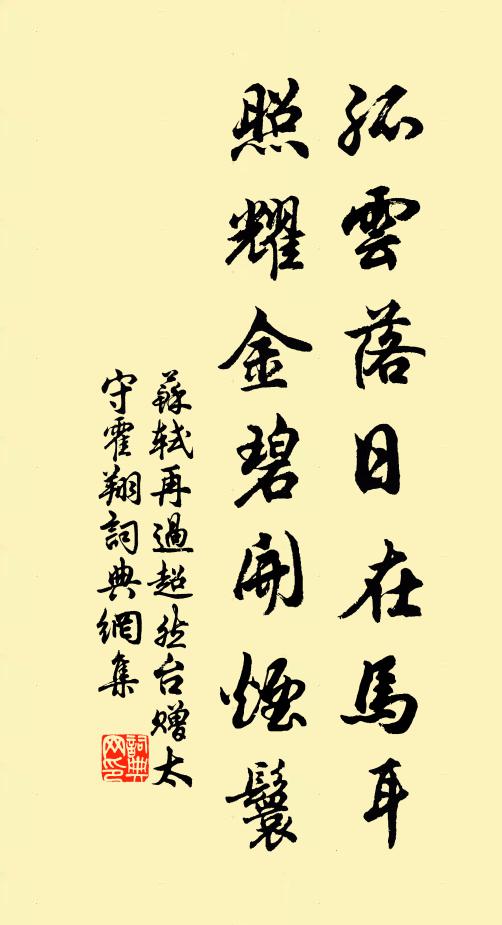 孤雲落日在馬耳
照耀金碧開煙鬟
蘇軾再過超然台贈太
守霍翔詞典網集
詞典
网印